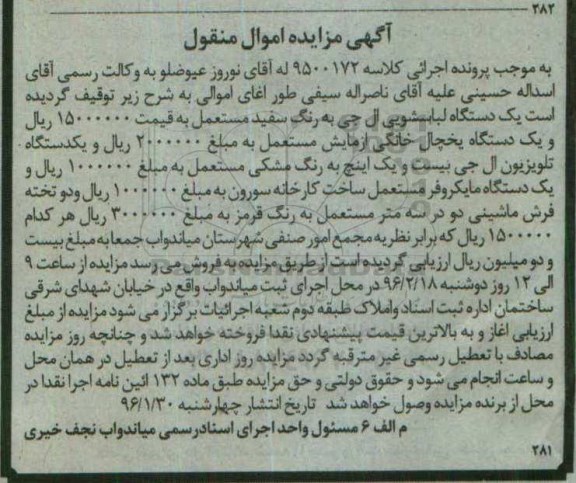 ۲۸۲
آگهی مزایده اموال منقول
به موجب پرونده اجرائی کلاسه ۹۵۰۰۱۷۲ له آقای نوروز عیوضلو به وکالت رسمی آقای
اسداله حسینی علیه آقای ناصراله سیفی طور اغای اموالی به شرح زیر توقیف گردیده
است یک دستگاه لباسشویی ال جی به رنگ سفید مستعمل به قیمت ۱۵۰۰۰۰۰۰ ریال
و یک دستگاه یخچال خانگی ازمایش مستعمل به مبلغ ۲۰۰۰۰۰۰ ریال و یکدستگاه
تلویزیون ال جی بیست و یک اینچ به رنگ مشکی مستعمل به مبلغ ۱۰۰۰۰۰۰ ریال و
یک دستگاه مایکروفر مستعمل ساخت کارخانه سورون به مبلغ ۱۰۰۰۰۰۰ ریال ودو تخته
فرش ماشینی دو در سه متر مستعمل به رنگ قرمز به مبلغ ۳۰۰۰۰۰۰ ریال هر کدام
۱۵۰۰۰۰۰ ریال که برابر نظریه مجمع امور صنفی شهرستان میاندواب جمعا به مبلغ بیست
و دو میلیون ریال ارزیابی گردیده است از طریق مزایده به فروش می رسد مزایده از ساعت ۹
الی ۱۲ روز دوشنبه ۹۶/۲/۱۸ در محل اجرای ثبت میاندواب واقع در خیابان شهدای شرقی
ساختمان اداره ثبت اسناد واملاک طبقه دوم شعبه اجرائیات برگزار می شود مزایده از مبلغ
ارزیابی اغاز و به بالاترین قیمت پیشنهادی نقدا فروخته خواهد شد و چنانچه روز مزایده
مصادف با تعطیل رسمی غیر مترقبه گردد مزایده روز اداری بعد از تعطیل در همان محل
و ساعت انجام می شود و حقوق دولتی و حق مزایده طبق ماده ۱۳۲ ائین نامه اجرا نقدا در
محل از برنده مزایده وصول خواهد شد تاریخ انتشار چهارشنبه ۹۶/۱/۳۰
م الف ۶ مسئول واحد اجرای اسنادرسمی میاندواب نجف خیری
۲۸۱